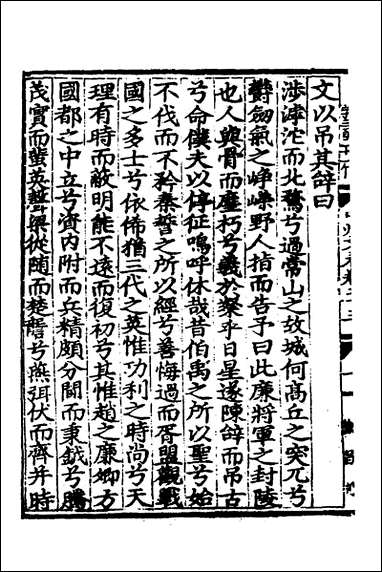 文以吊其辞曰
涉滹沱而北騖兮過常山之故城何高丘之突兀兮
欝劒氣之峥嵘野人指而告予曰此廉將軍之封陵
也人與骨而塵朽兮義於粲乎日星遂陳辞而吊古
兮命僕夫以停征嗚呼休哉昔伯禹之所以聖兮始
不伐而不矜秦誓之所以經兮善悔過而胥盟觀戰
國之多士兮依俙猶三代之英惟功利之時尚兮天
理有時而蔽明能不遠而復初兮其惟趙之廉卿方
國都之中立兮資内附而兵精頗分閫而秉鉞兮騰
茂實而蜚英聲梁從隨而楚讋兮燕弭伏而齊并時